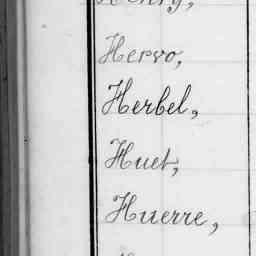 Henry,
Hervo,
Herbel,
Huet,
Huerre,